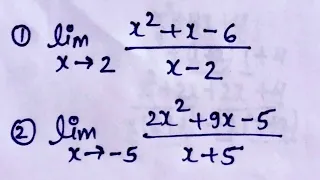 ① lim x→2 (x²+x-6)/(x-2)
② lim x→-5 (2x²+9x-5)/(x+5)